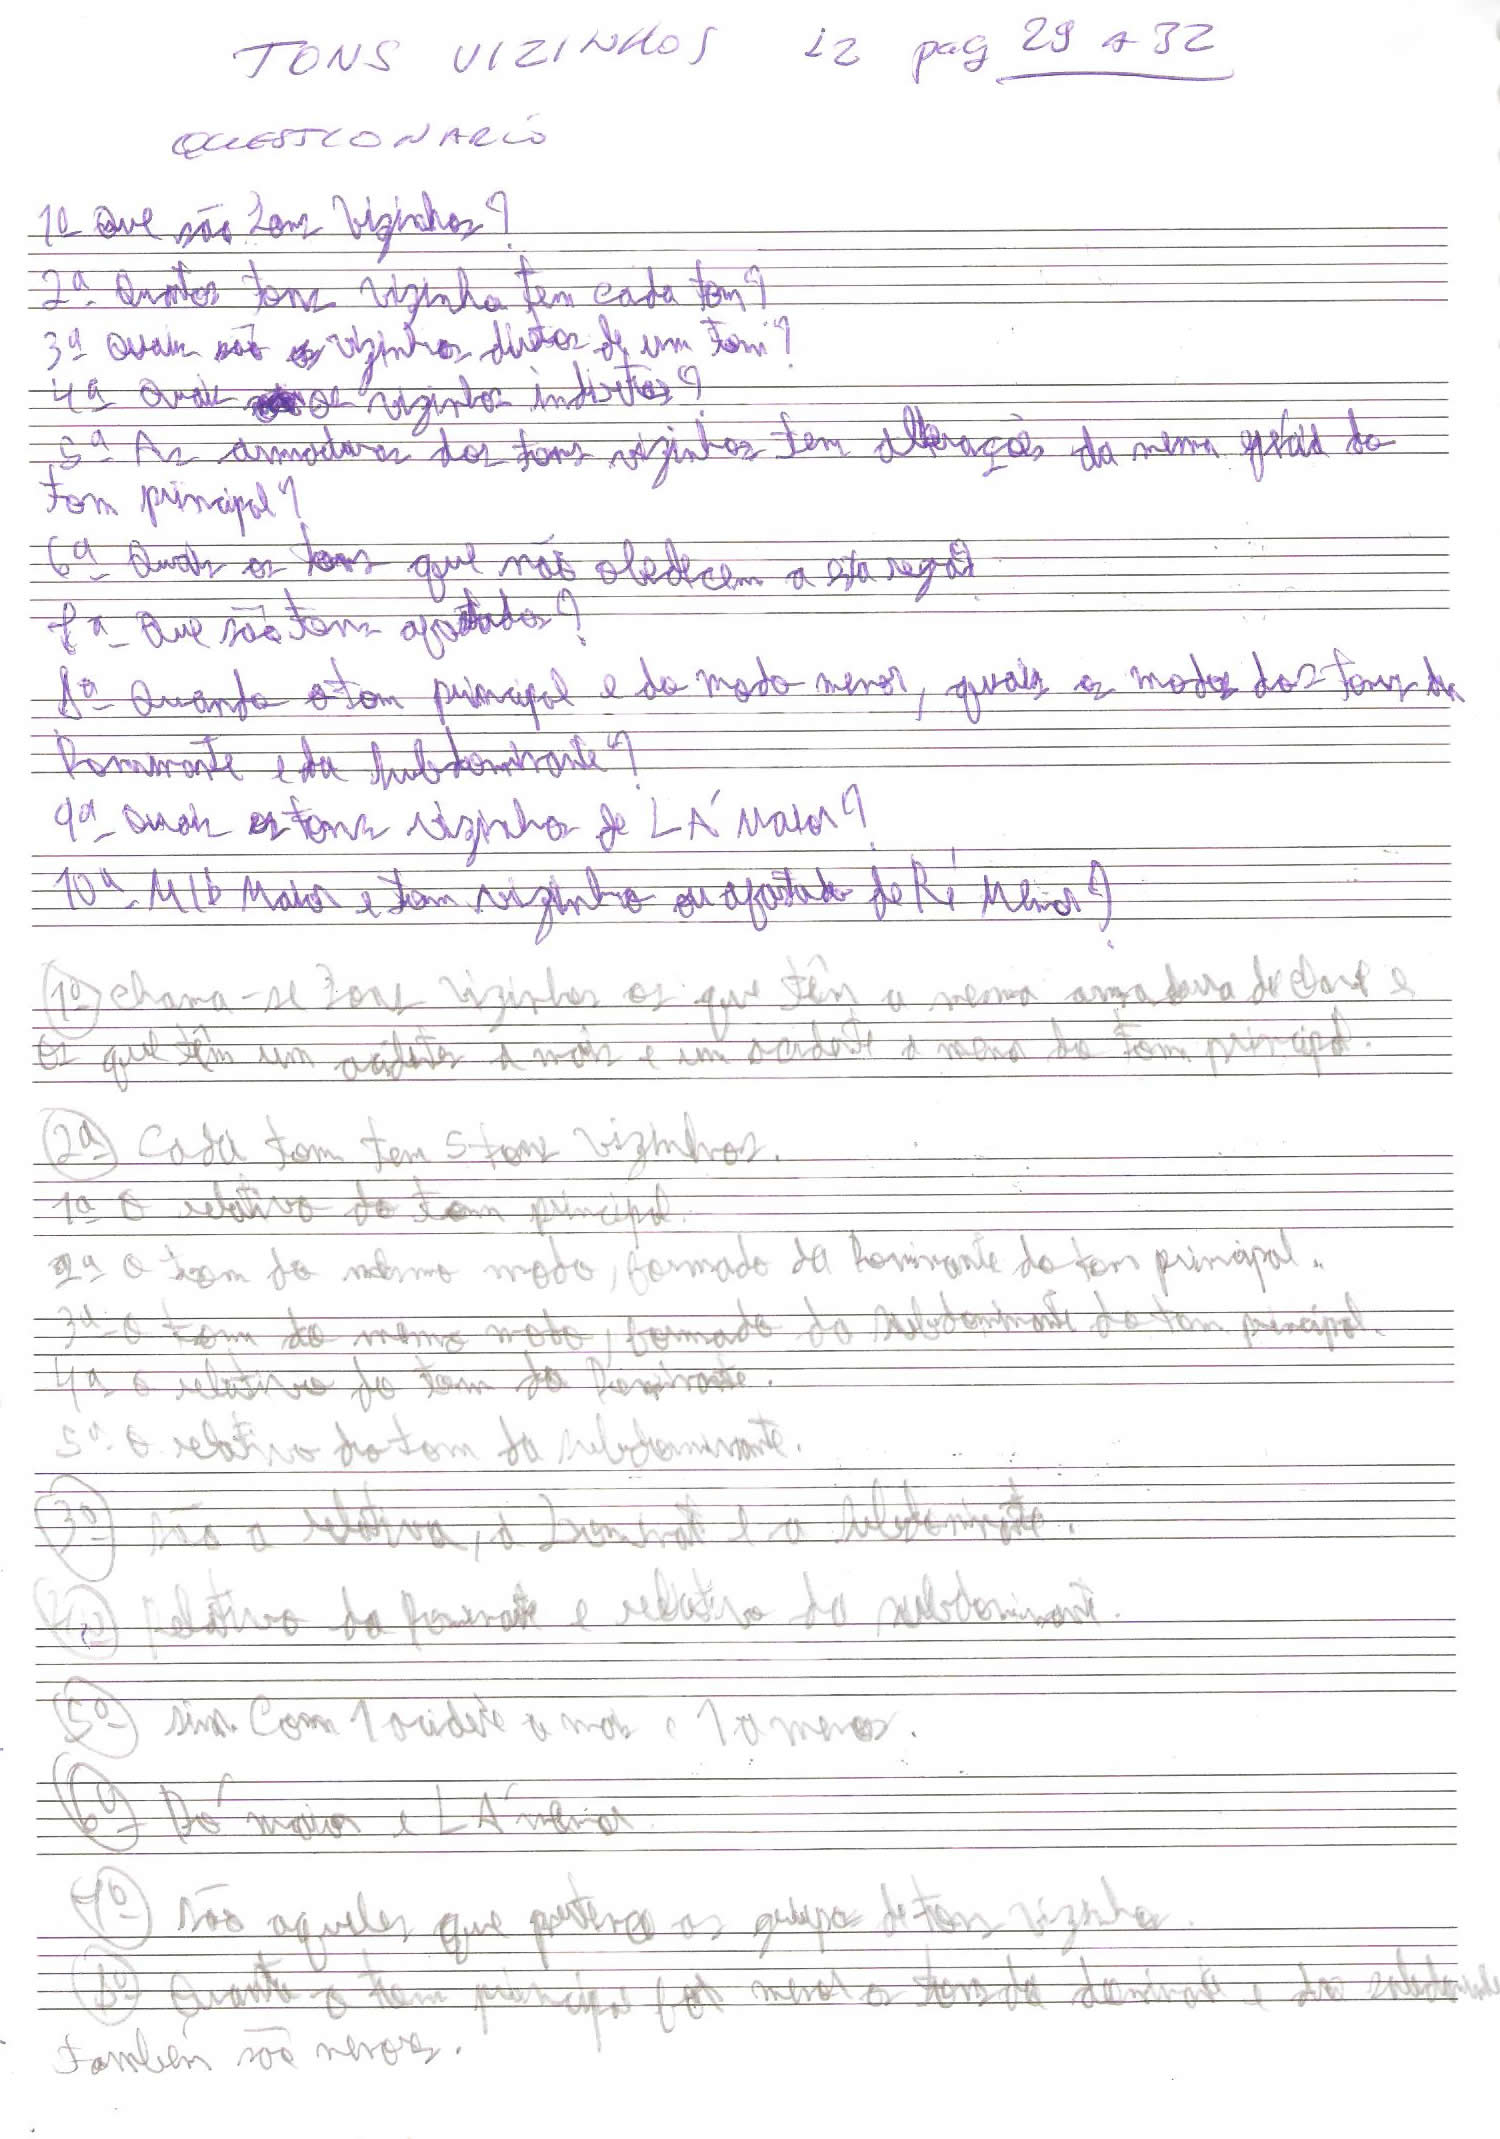 TONS VIZINHOS 12 pag 29 a 32
QUESTIONARIO
1ª Que são Tons Vizinhos?
2ª Quantos tons vizinho tem cada tom?
3ª Quais são os vizinhos diretos de um tom?
4ª Quais os vizinhos indiretos?
5ª As armaduras dos tons vizinhos tem alterações da mema do
tom principal?
6ª Quais os tons que não obedecem a esta regra?
7ª Que são tons afastados?
8ª Quando o tom principal e do modo menor, quais os modos dos tons da
Dominante e da subdominante?
9ª Quais os tons vizinhos de LÁ Maior?
10ª MIb Maior e tom vizinho ou afastado de Ré Menor?
1ª chama-se Tons vizinhos os que têm a mesma armadura de clave e
os que têm um acidentes a mais e um acidente a meno do Tom principal.
2ª Cada tom tem 5 tons vizinhos.
1ª O relativo do tom principal.
2ª O tom do mesmo modo, formado da Dominante do tom principal.
3ª o tom do memo modo, formado da subdominante do tom principal.
4ª o relativo do tom da Dominante.
5ª O relativo do tom da subdominante.
3ª são o relativo, a Dominante e a subdominante.
4ª Relativo da Dominante e relativo da subdominante.
5ª sim. Com 1 acidente a mais e 1 a menos.
6ª Dó maior e LÁ menor
7ª São aqueles que os grupo de tons vizinhos.
8ª Quanto o tom principal for menor o tons da dominante e da subdominante
também são menores.